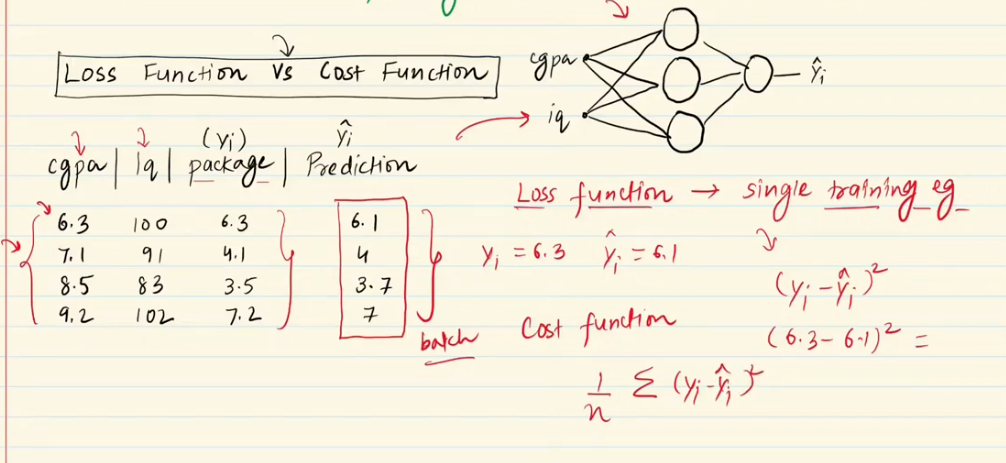 Loss Function Vs Cost Function
cgpa
iq
ŷi
(yi) ŷi
cgpa | iq | package | Prediction
6.3 100 6.3 6.1
7.1 91 4.1 4
8.5 83 3.5 3.7
9.2 102 7.2 7
batch
Loss function → single training eg
yi = 6.3 ŷi = 6.1
(yi - ŷi)²
(6.3 - 6.1)² =
Cost function
1/n Σ (yi - ŷi)²